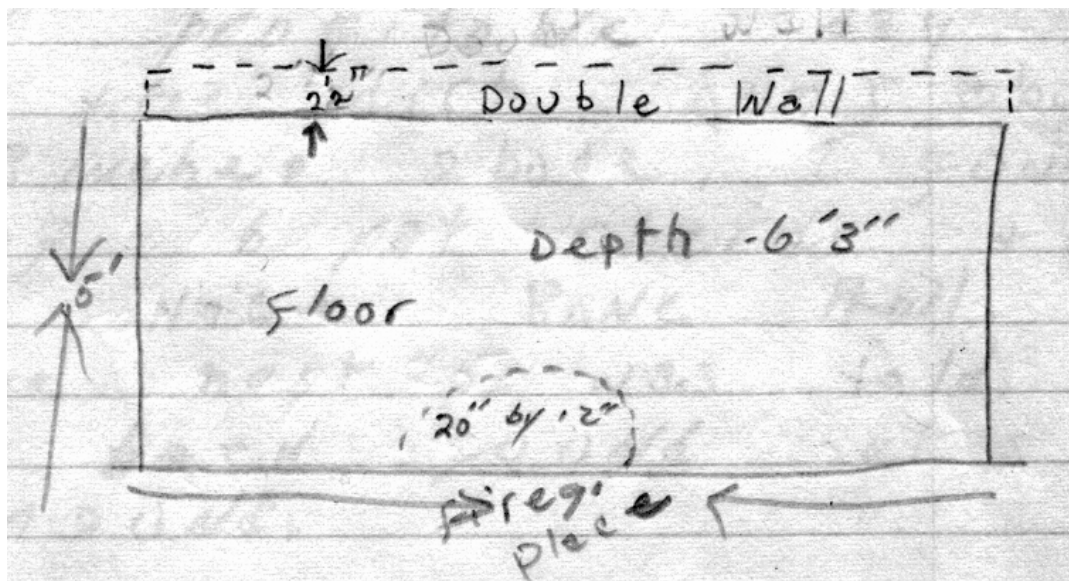 2'2" Double Wall
Depth - 6'3"
5'
Floor
20" by 12"
Fire 9' e
place